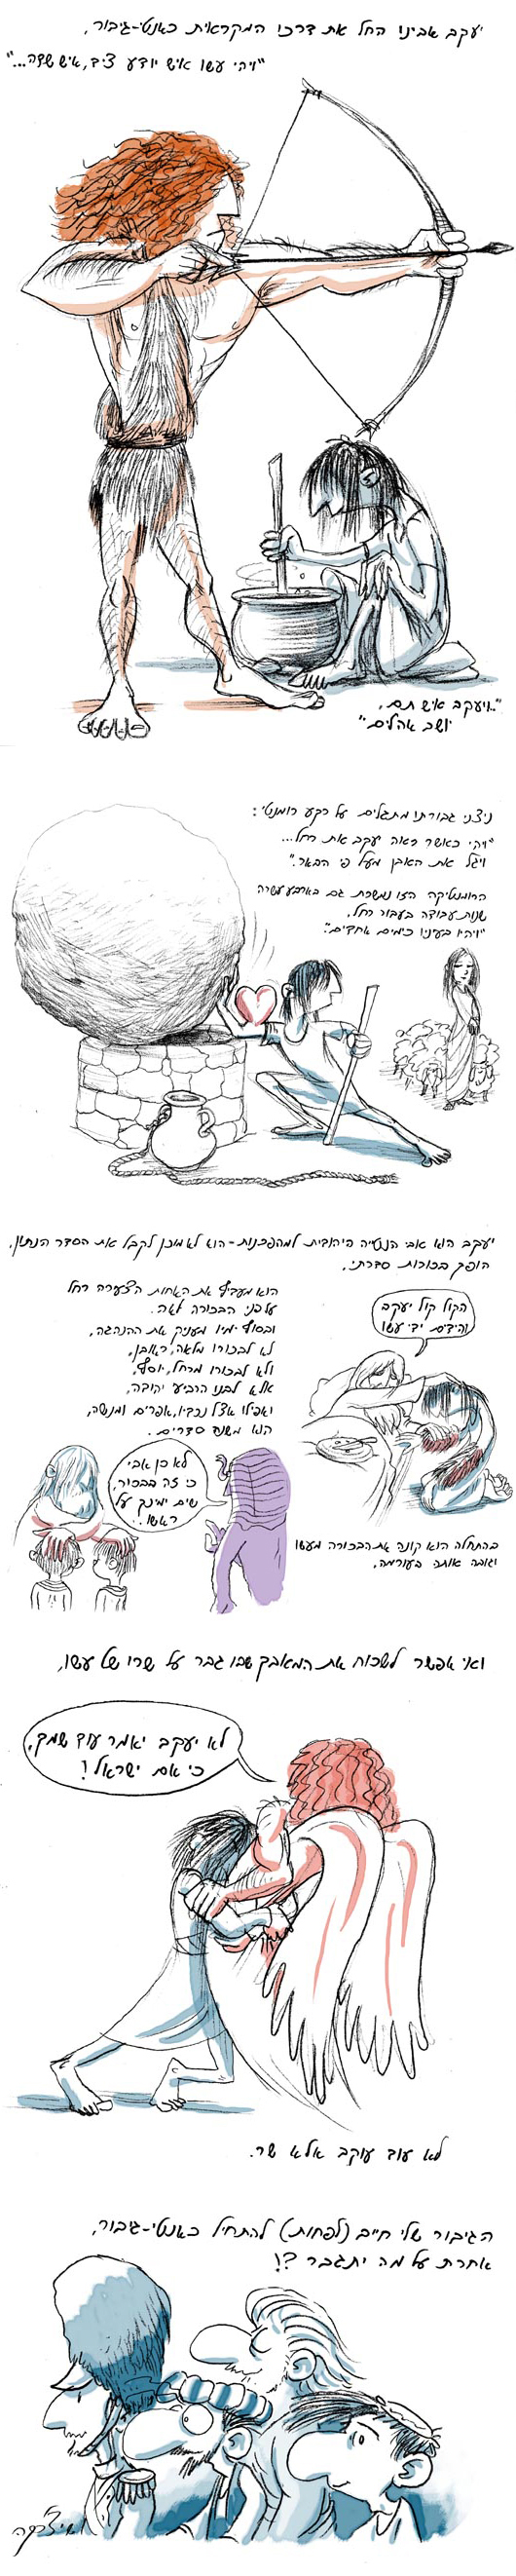 יעקב אבינו החל את דרכו המקראית כאנטי-גיבור,
"ויהי עשו איש יודע ציד, איש שדה..."
"..ויעקב איש תם,
יושב אהלים"
ניצני גבורתו מתגלים על רקע רומנטי:
"ויהי כאשר ראה יעקב את רחל...
ויגל את האבן מעל פי הבאר."
הרומנטיקה הזו נמשכת גם בארבע עשרה
שנות עבודה בעבור רחל,
"ויהיו בעיניו כימים אחדים".
יעקב הוא אבי הנטייה היהודית למהפכנות - הוא לא מוכן לקבל את הסדר הנתון,
הופך בכורות סדרתי.
הקול קול יעקב
והידים ידי עשו
בהתחלה הוא קונה את הבכורה מעשו
וגובה אותה בעורמה,
הוא מעדיף את האחות הצעירה רחל
על פני הבכורה לאה.
ובסוף ימיו מעניק את ההנהגה,
לא לבכורו מלאה, ראובן,
ולא לבכורו מרחל, יוסף,
אלא לבנו הרביעי יהודה,
ואפילו אצל נכדיו, אפרים ומנשה,
הוא משנה סדרים.
לא כן אבי
כי זה בבכור,
שים ימינך על
ראשו.
ואי אפשר לשכוח את המאבק שבו גבר על שרו של עשו,
לא יעקב יאמר עוד שמך,
כי אם ישראל!
לא עוד עוקב אלא שר.
הגיבור שלי חייב (לפחות) להתחיל כאנטי-גיבור,
אחרת על מה יתגבר?!